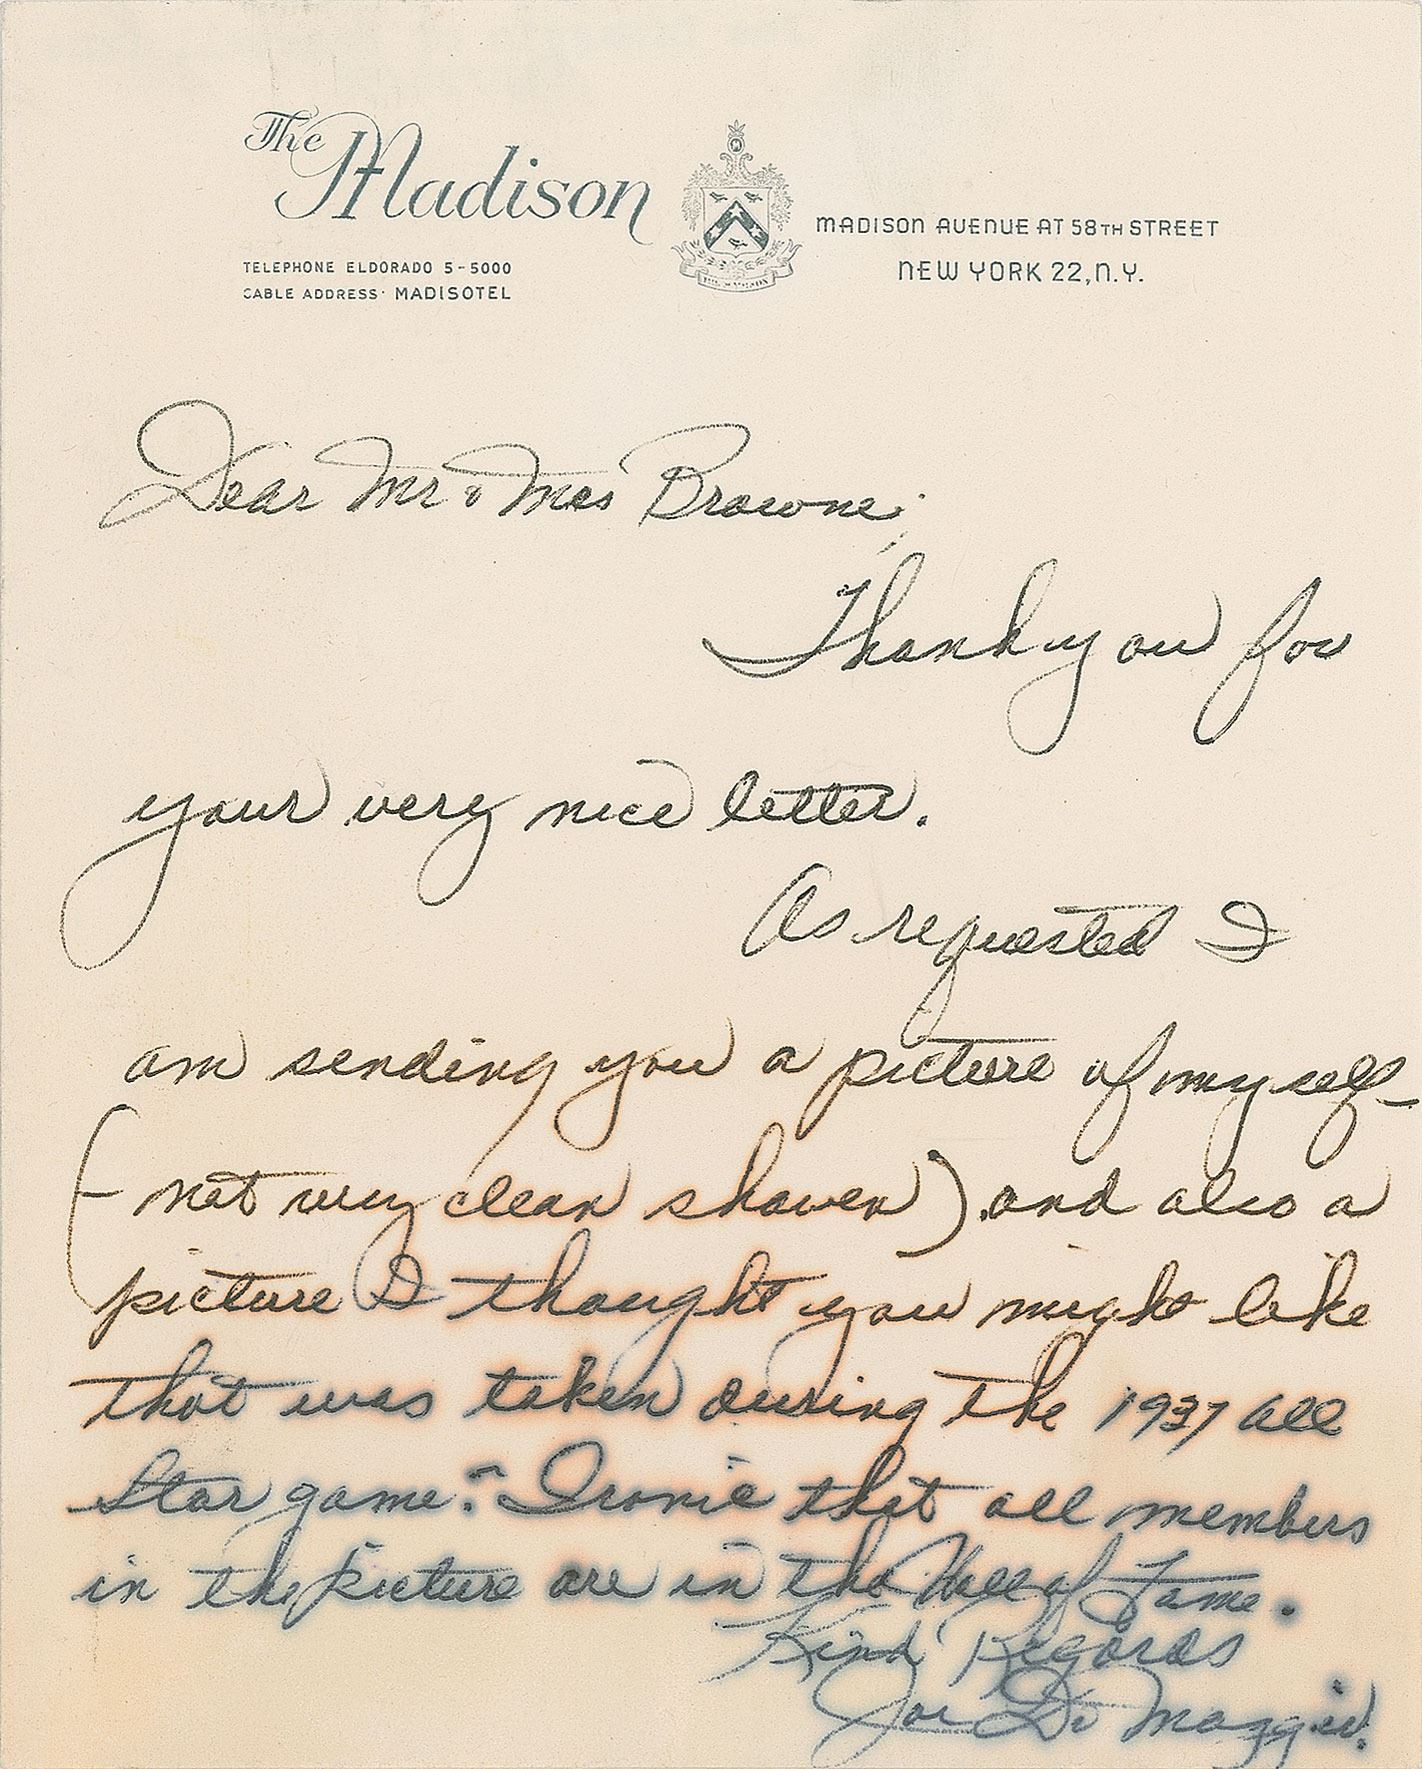 The Madison
TELEPHONE ELDORADO 5-5000
CABLE ADDRESS · MADISOTEL
MADISON AVENUE AT 58TH STREET
NEW YORK 22, N.Y.
Dear Mr & Mrs Browne;
Thank you for
your very nice letter.
As requested I
am sending you a picture of myself-
(- not very clean shaven). and also a
picture I thought you might like
that was taken during the 1937 all
Star game. - Ironic that all members
in the picture are in the Hall of Fame.
Kind Regards
Joe Di Maggio.